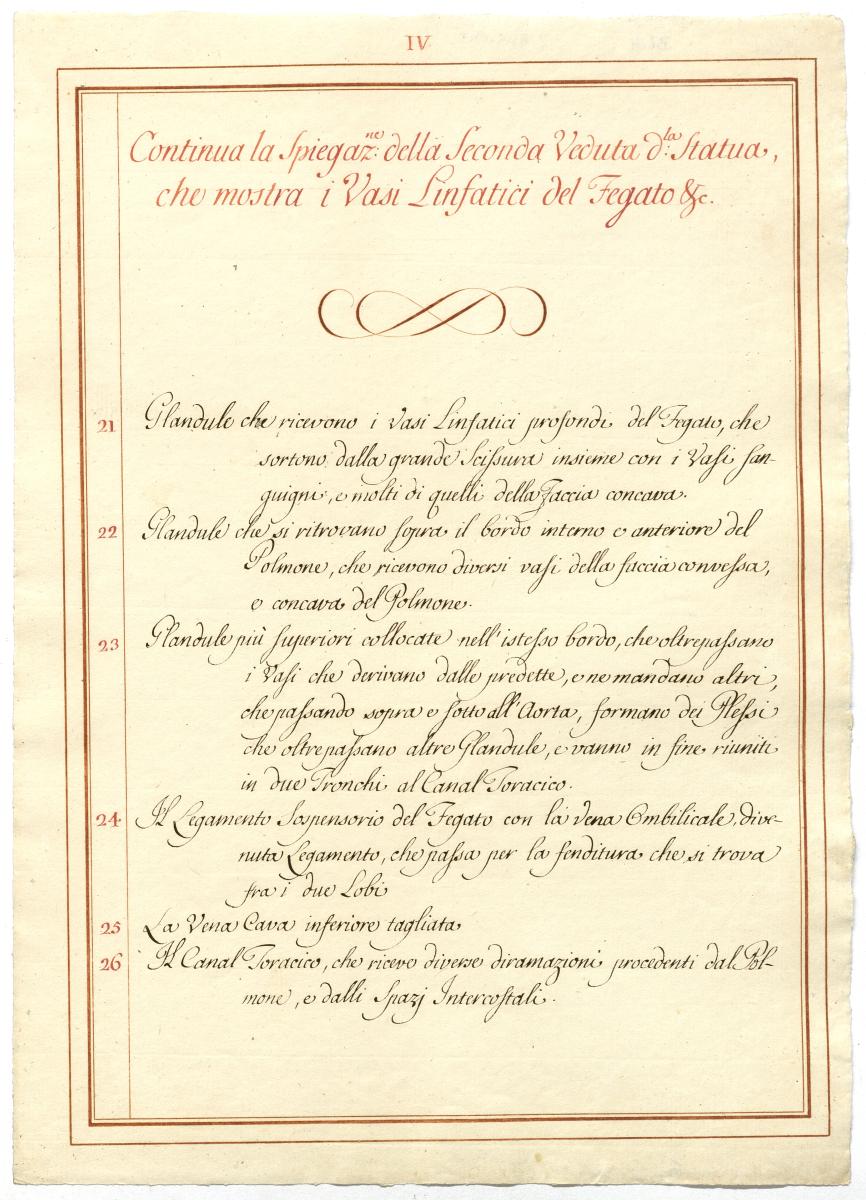 IV
Continua la Spiegaz.ne della Seconda Veduta d.la Statua,
che mostra i Vasi Linfatici del Fegato &c.
21 Glandule che ricevono i Vasi Linfatici profondi del Fegato, che
sortono dalla grande Scissura insieme con i Vasi San-
guigni, e molti di quelli della Faccia concava.
22 Glandule che si ritrovano sopra il bordo interno e anteriore del
Polmone, che ricevono diversi vasi della faccia convessa,
e concava del Polmone.
23 Glandule più superiori collocate nell'istesso bordo, che oltrepassano
i Vasi che derivano dalle predette, e ne mandano altri,
che passando sopra e sotto all'Aorta, formano dei Plessi
che oltrepassano altre Glandule, e vanno in fine riuniti
in due Tronchi al Canal Toracico.
24 Il Legamento Sospensorio del Fegato con la Vena Ombilicale dive-
nuta Legamento, che passa per la fenditura che si trova
fra i due Lobi
25 La Vena Cava inferiore tagliata
26 Il Canal Toracico, che riceve diverse diramazioni procedenti dal Pol-
mone, e dalli Spazj Intercostali.